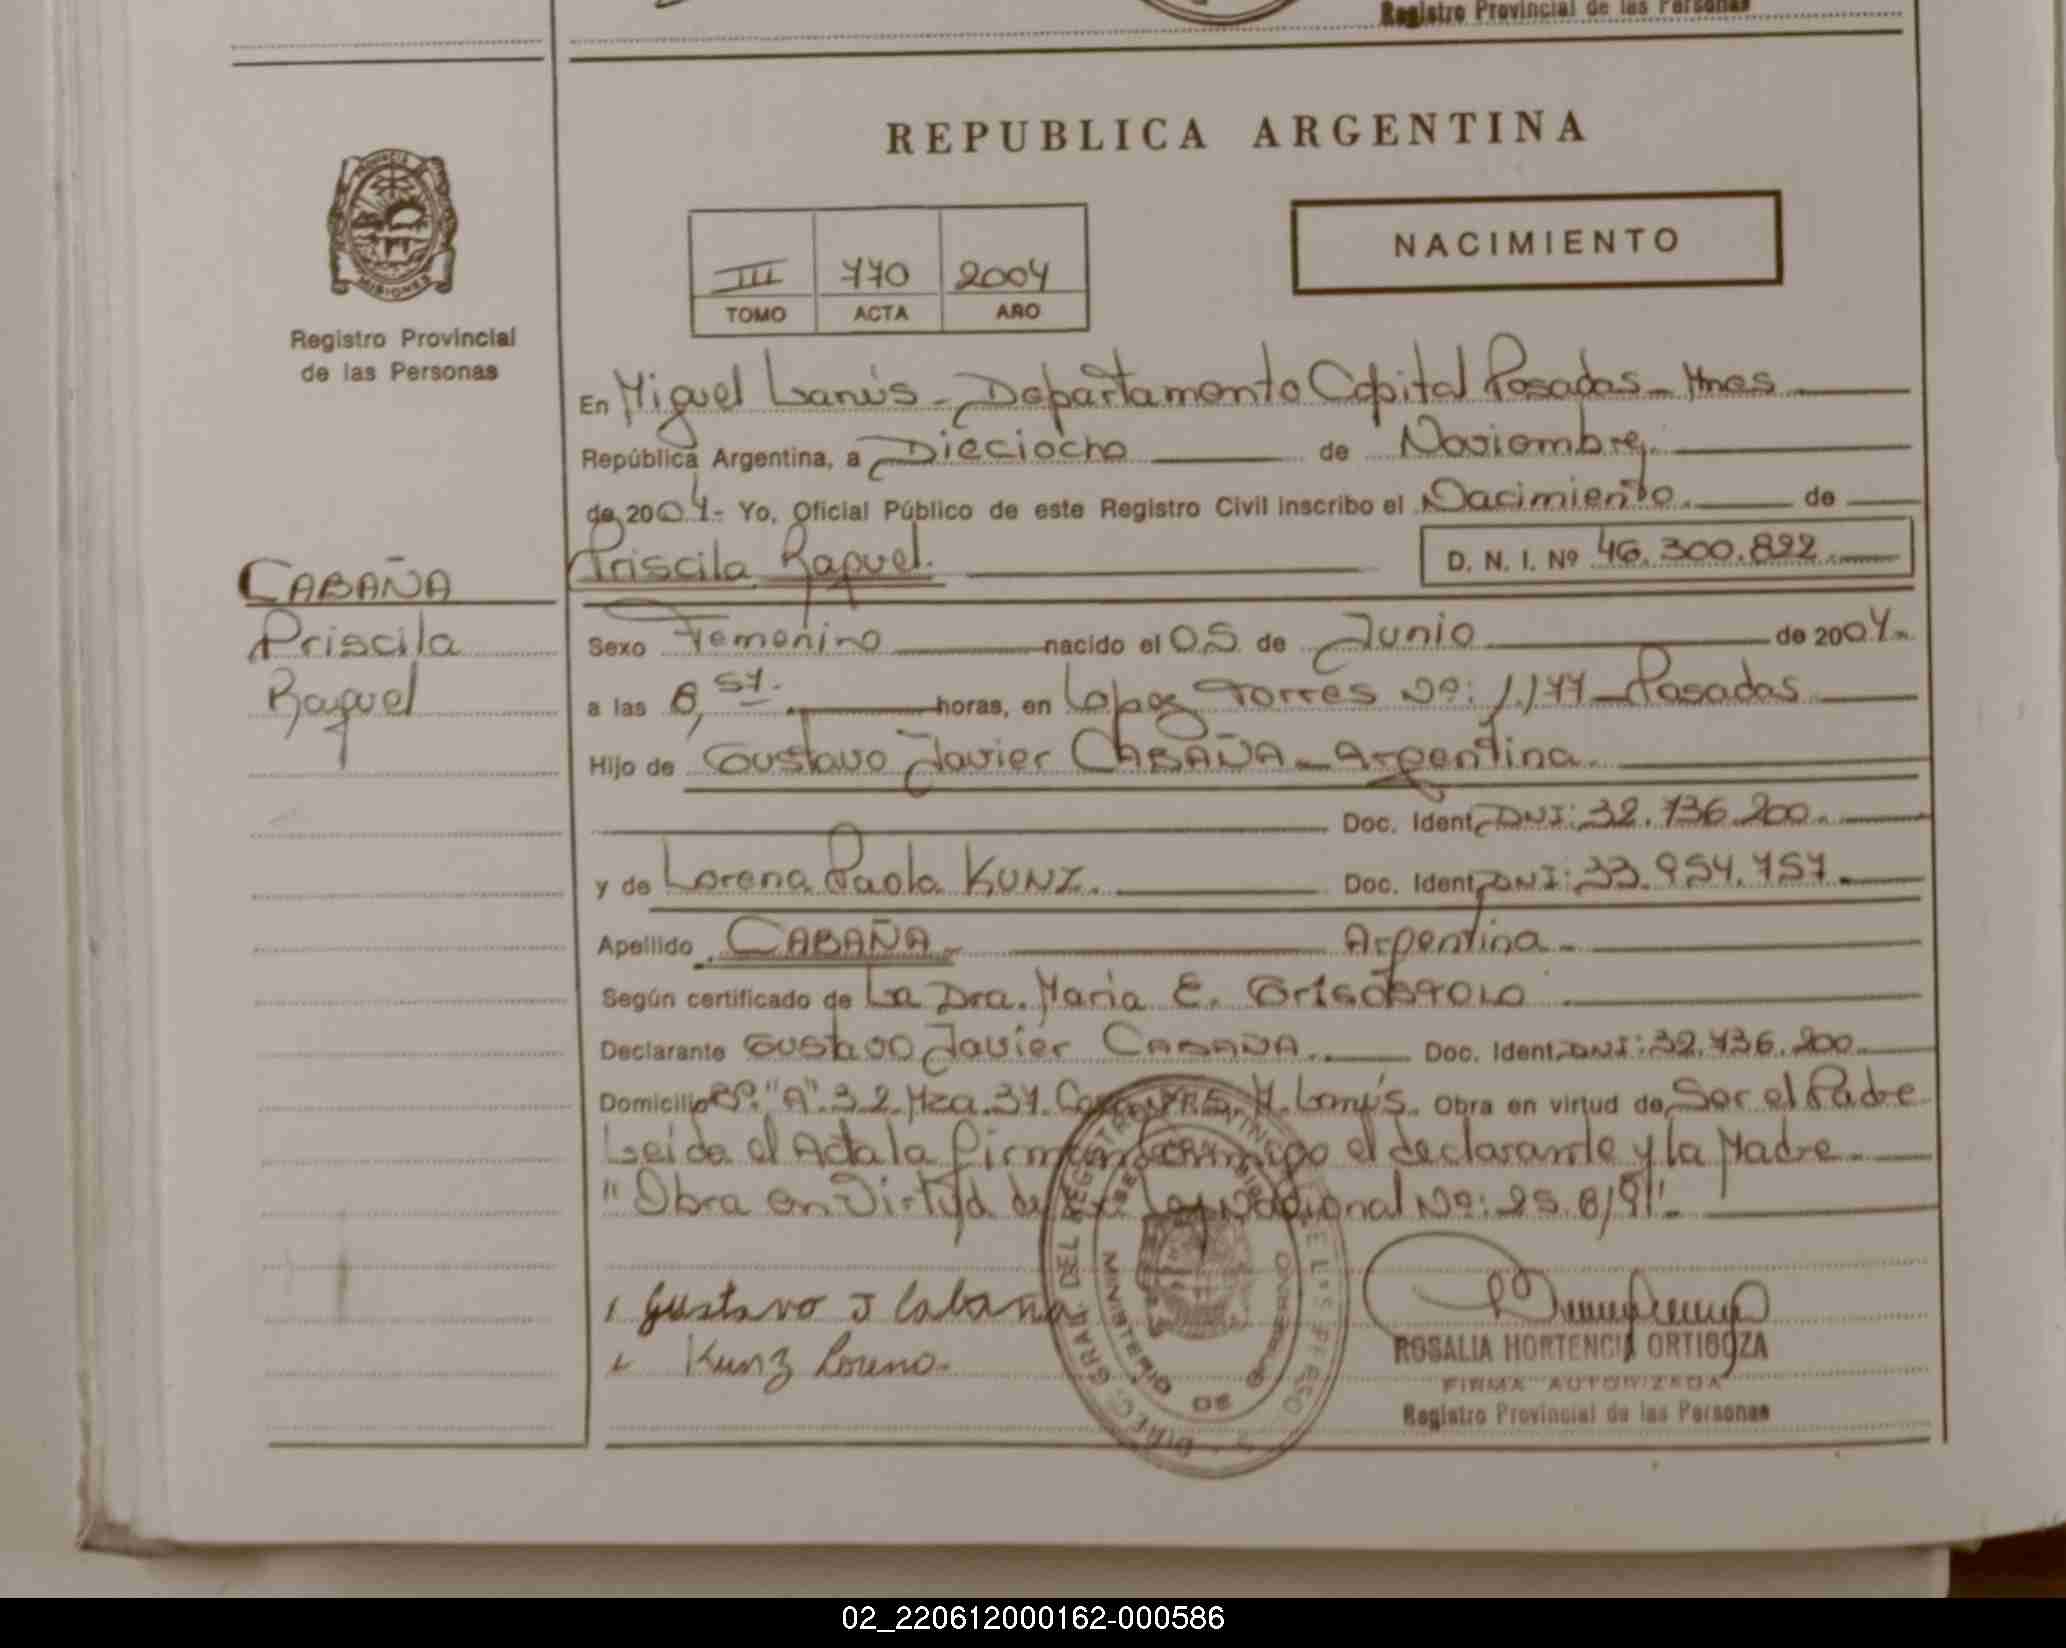 Registro Provincial de las Personas
REPUBLICA ARGENTINA
PROVINCIA
MISIONES
Registro Provincial
de las Personas
III 770 2004
TOMO ACTA AÑO
NACIMIENTO
En Miguel Lanús - Departamento Capital Posadas - Mnes
República Argentina, a Dieciocho de Noviembre
de 2004 - Yo, Oficial Público de este Registro Civil inscribo el Nacimiento. de
Priscila Raquel. D. N. I. Nº 46.300.822
CABAÑA
Priscila
Raquel
Sexo Femenino nacido el 05 de Junio de 2004.
a las 8,57. horas, en Lopez Torres Nº: 1.177 - Posadas
Hijo de Gustavo Javier CABAÑA - Argentina.
Doc. Ident. DNI: 32.736.200.
y de Lorena Paola KUNZ. Doc. Ident. DNI: 33.954.757.
Apellido CABAÑA - Argentina -
Según certificado de La Dra. Maria E.
Declarante Gustavo Javier CABAÑA. Doc. Ident. DNI: 32.736.200
Domicilio "A" 32. Mza. 37. M. Lanús. Obra en virtud de Ser el Padre
Leida el Acta la firman conmigo el declarante y la Madre
"Obra en Virtud de Ley Nacional Nº: 25.819".
Gustavo J Cabaña
Kunz Lorena.
ROSALIA HORTENCIA ORTIGOZA
FIRMA AUTORIZADA
Registro Provincial de las Personas
02_220612000162-000586